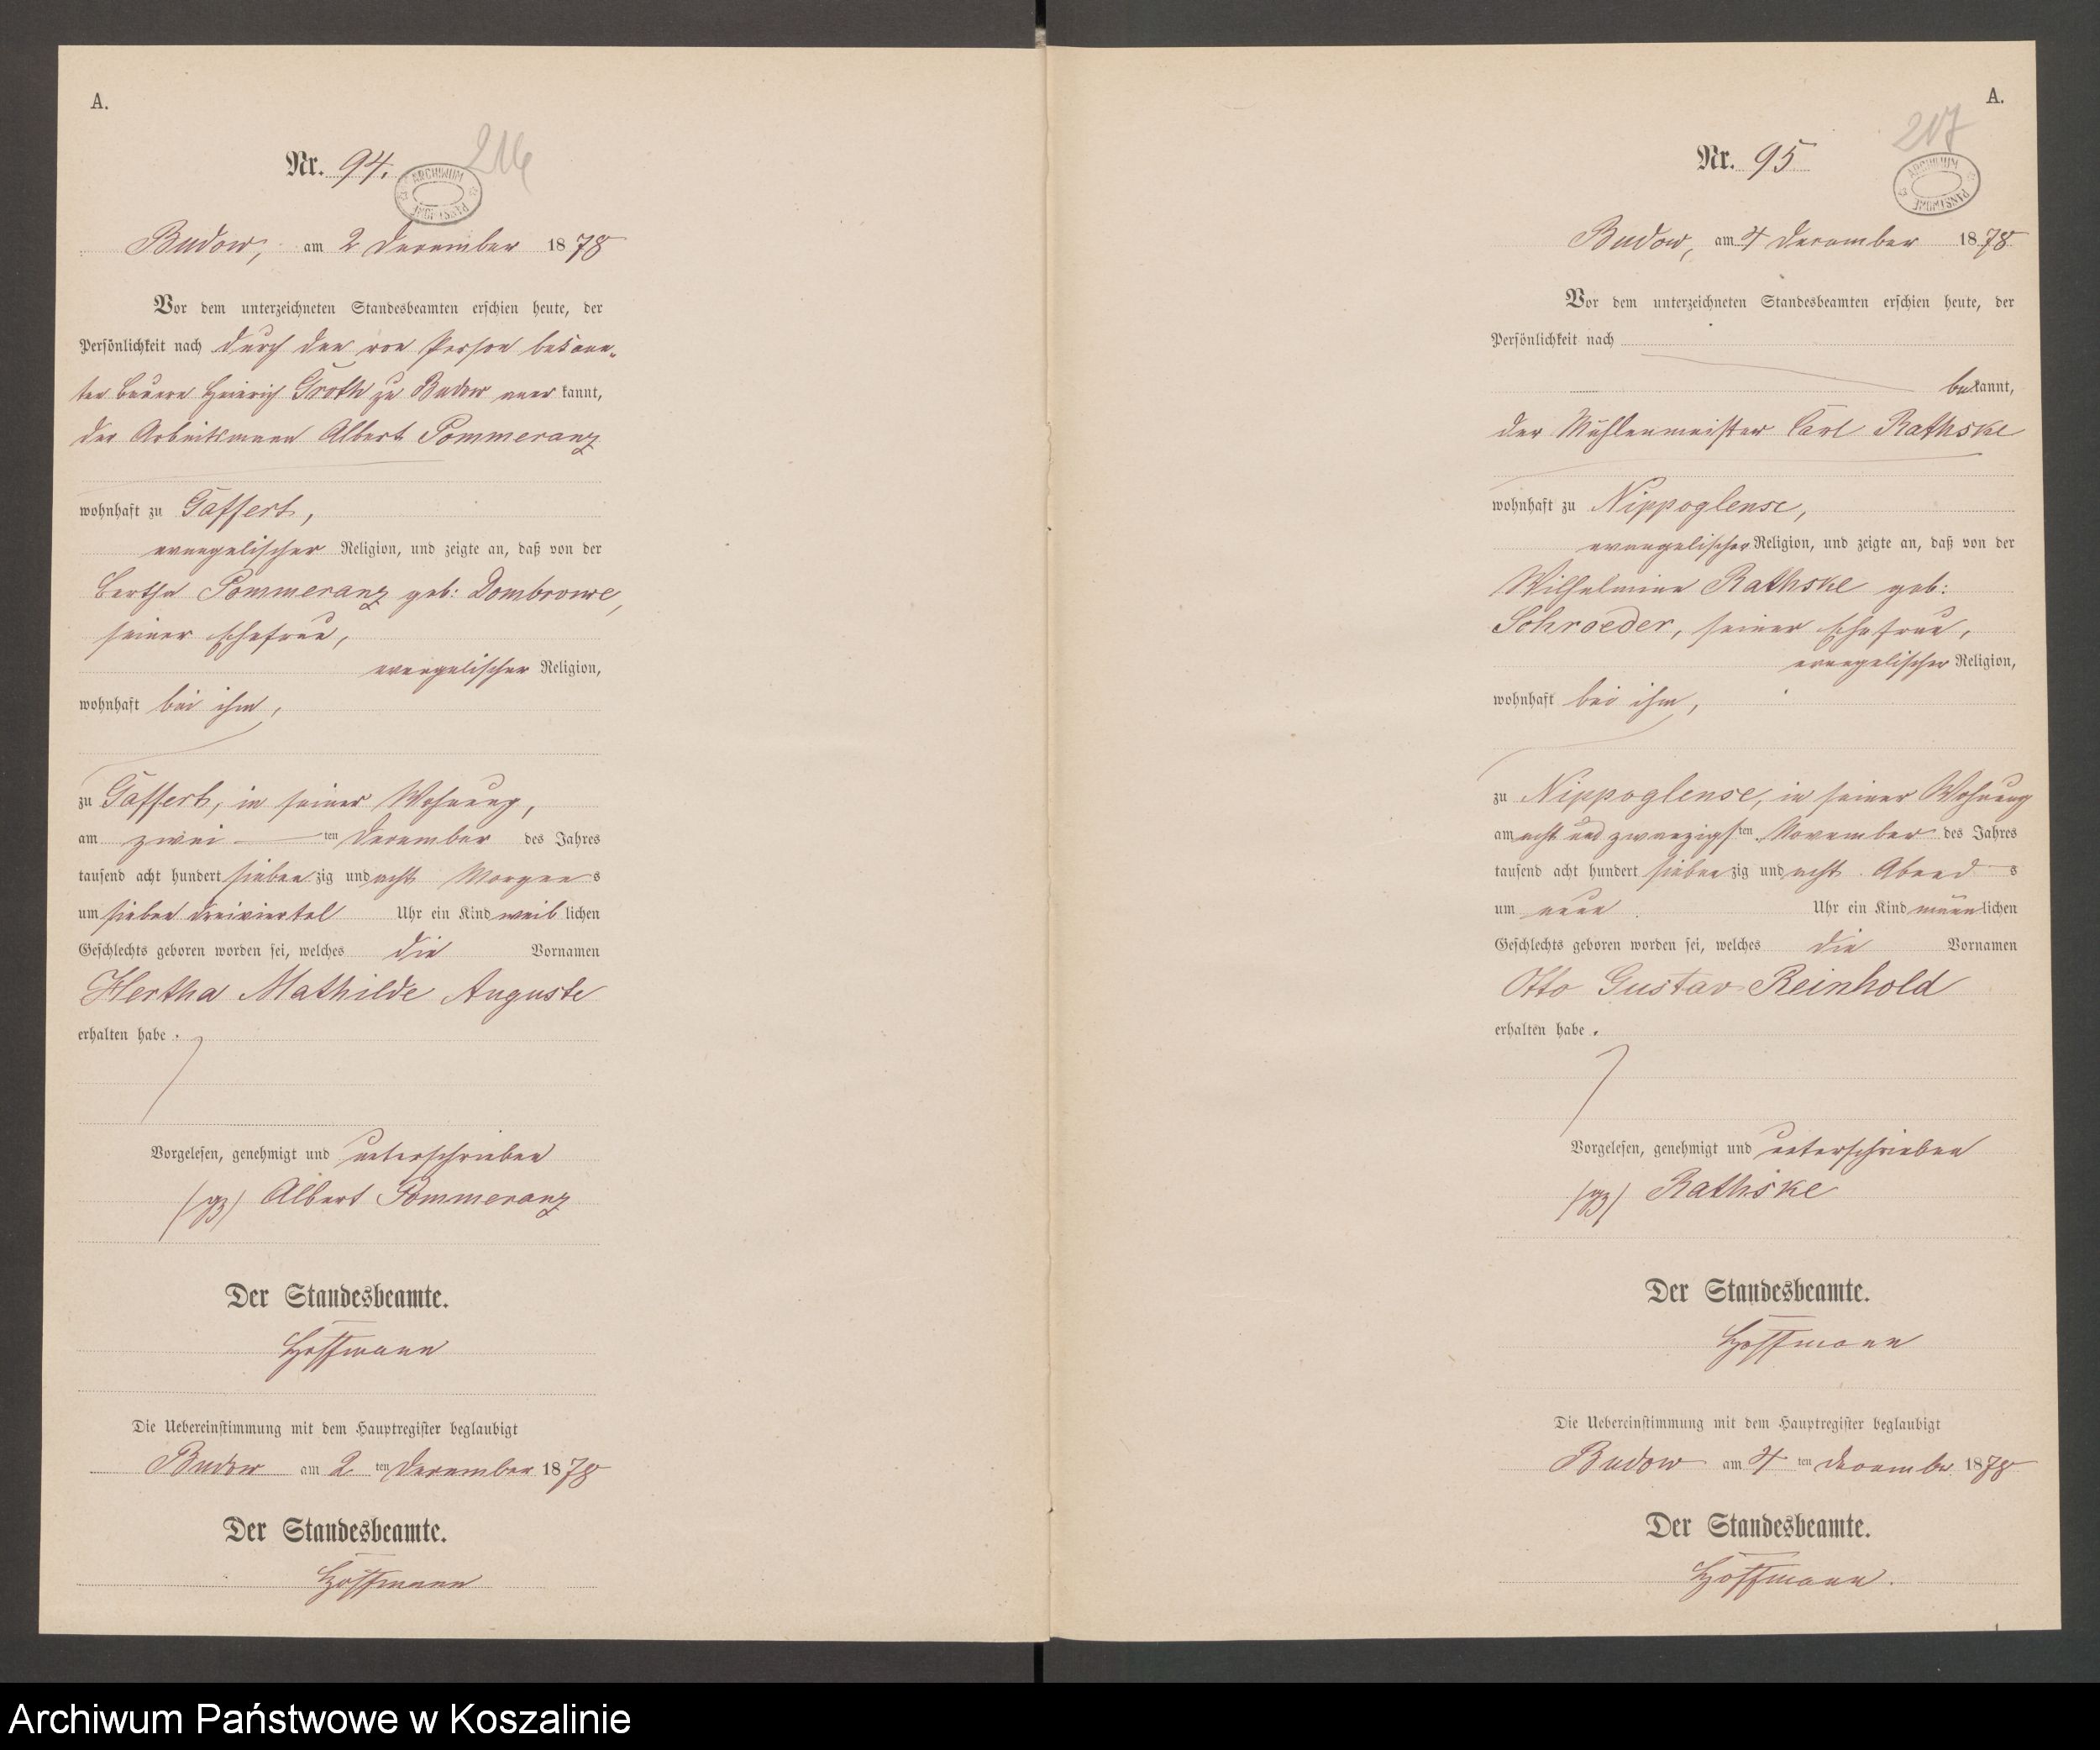 A.
Nr. 94.
216
ARCHIWUM PAŃSTWOWE
Budow, am 2 December 1878
Vor dem unterzeichneten Standesbeamten erschien heute, der
Persönlichkeit nach durch den von Person bekann-
ten Bauern Heinrich Groth zu Budow aner kannt,
der Arbeitsmann Albert Pommeranz
wohnhaft zu Gaffert,
evangelischer Religion, und zeigte an, daß von der
Bertha Pommeranz geb: Dombrowe,
seiner Ehefrau,
evangelischer Religion,
wohnhaft bei ihm,
zu Gaffert, in seiner Wohnung,
am zwei ten December des Jahres
tausend acht hundert sieben zig und acht Morgens
um sieben dreiviertel Uhr ein Kind weib lichen
Geschlechts geboren worden sei, welches die Vornamen
Hertha Mathilde Auguste
erhalten habe.
Vorgelesen, genehmigt und unterschrieben
(gz) Albert Pommeranz
Der Standesbeamte.
Hoffmann
Die Uebereinstimmung mit dem Hauptregister beglaubigt
Budow am 2 ten December 1878
Der Standesbeamte.
Hoffmann
A.
Nr. 95
217
ARCHIWUM PAŃSTWOWE
Budow, am 4 December 1878
Vor dem unterzeichneten Standesbeamten erschien heute, der
Persönlichkeit nach
be kannt,
der Mühlenmeister Carl Rathske
wohnhaft zu Nippoglense,
evangelischer Religion, und zeigte an, daß von der
Wilhelmine Rathske geb:
Schroeder, seiner Ehefrau,
evangelischer Religion,
wohnhaft bei ihm,
zu Nippoglense, in seiner Wohnung
am acht und zwanzigsten November des Jahres
tausend acht hundert sieben zig und acht Abends
um neun Uhr ein Kind männ lichen
Geschlechts geboren worden sei, welches die Vornamen
Otto Gustav Reinhold
erhalten habe.
Vorgelesen, genehmigt und unterschrieben
(gz) Rathske
Der Standesbeamte.
Hoffmann
Die Uebereinstimmung mit dem Hauptregister beglaubigt
Budow am 4 ten December 1878
Der Standesbeamte.
Hoffmann.
Archiwum Państwowe w Koszalinie